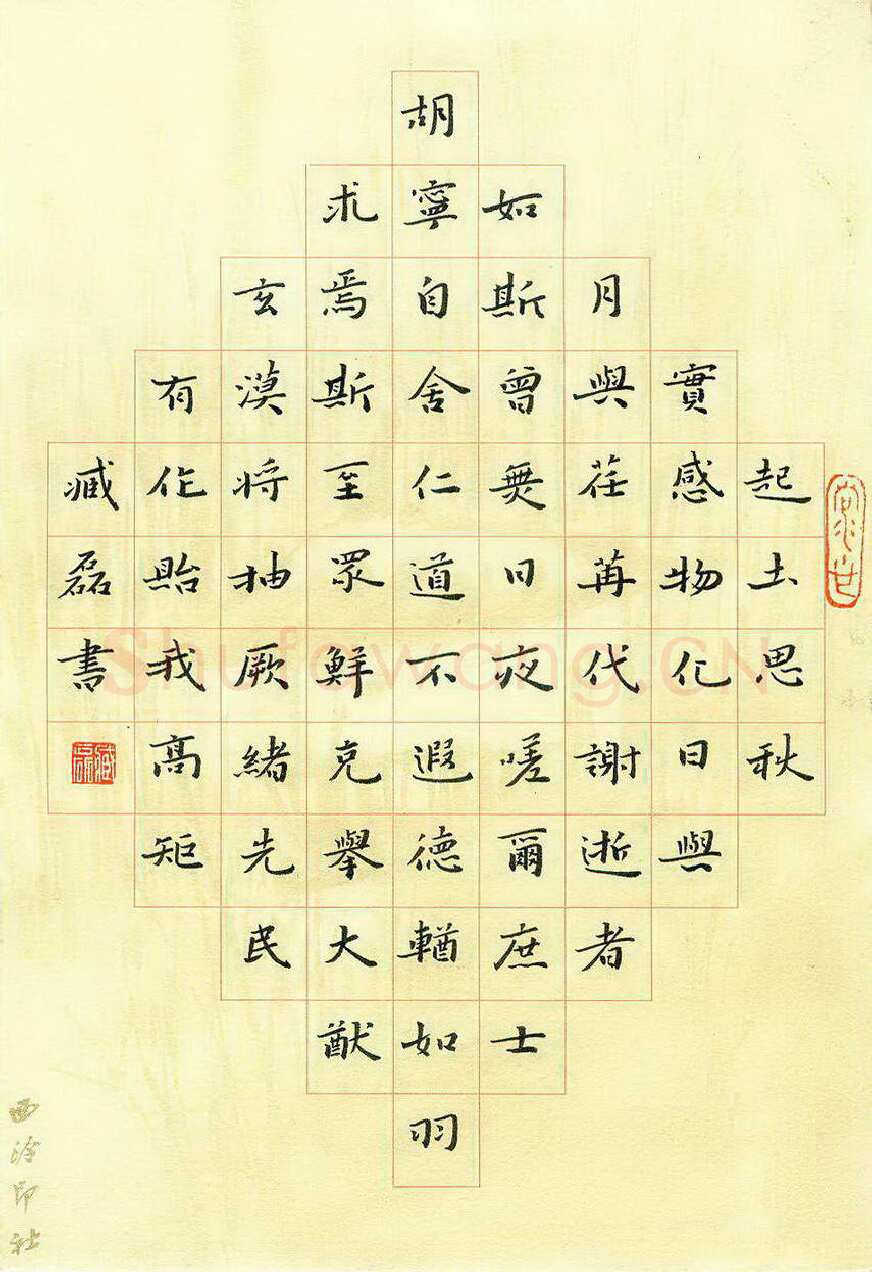 起土思秋
實感物化日與
月與荏苒代謝逝者
如斯曾無日夜嗟爾庶士
胡寧自舍仁道不遐德輶如羽
求焉斯至眾鮮克舉大猷
玄漠將抽厥緒先民
有作貽我高矩
臧磊書
臧磊
西泠印社
Shufawang.CN